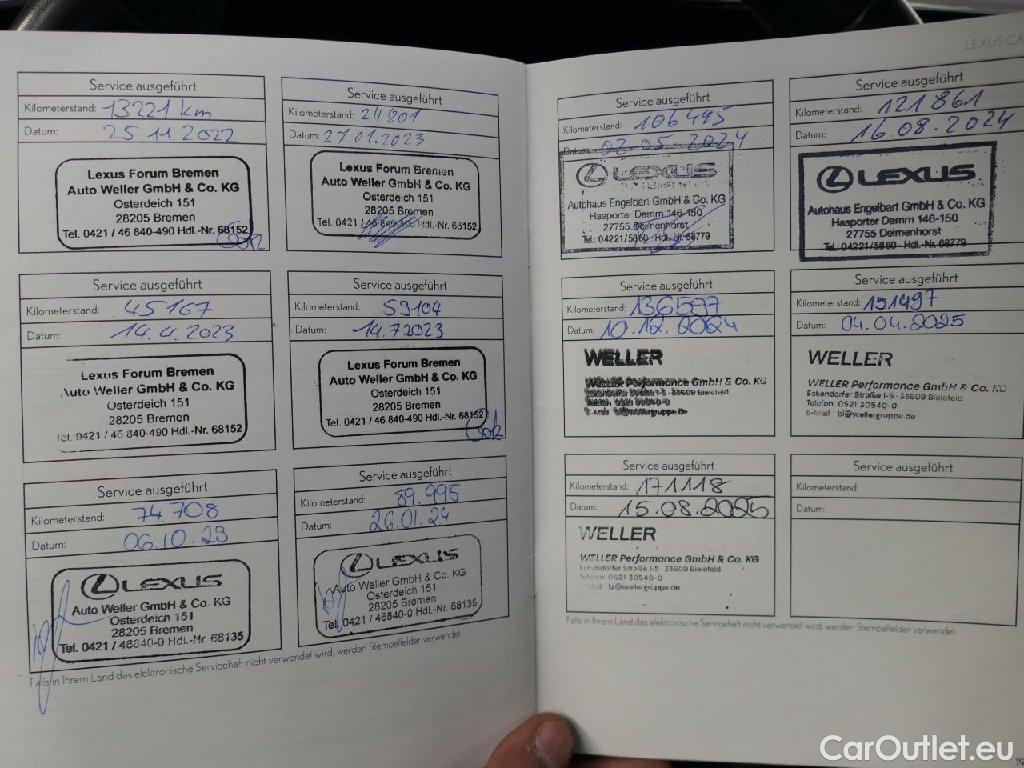 LEXUS CA
Service ausgeführt
Kilometerstand: 13221 km
Datum: 25 11 2022
Lexus Forum Bremen
Auto Weller GmbH & Co. KG
Osterdeich 151
28205 Bremen
Tel. 0421 / 46 840-490 Hdl.-Nr. 68152
Service ausgeführt
Kilometerstand: 28801
Datum: 27 01. 2023
Lexus Forum Bremen
Auto Weller GmbH & Co. KG
Osterdeich 151
28205 Bremen
Tel. 0421 / 46 840-490 Hdl.-Nr. 68152
Service ausgeführt
Kilometerstand: 45167
Datum: 14. 4. 2023
Lexus Forum Bremen
Auto Weller GmbH & Co. KG
Osterdeich 151
28205 Bremen
Tel. 0421 / 46 840-490 Hdl.-Nr. 68152
Service ausgeführt
Kilometerstand: 59104
Datum: 14.7 2023
Lexus Forum Bremen
Auto Weller GmbH & Co. KG
Osterdeich 151
28205 Bremen
Tel. 0421 / 46 840-490 Hdl.-Nr. 68152
Service ausgeführt
Kilometerstand: 74.708
Datum: 06.10.23
LEXUS
Auto Weller GmbH & Co. KG
Osterdeich 151
28205 Bremen
Tel. 0421 / 46840-0 Hdl.-Nr. 68135
Service ausgeführt
Kilometerstand: 89.995
Datum: 26.01.24
LEXUS
Auto Weller GmbH & Co. KG
Osterdeich 151
28205 Bremen
Tel. 0421 / 46840-0 Hdl.-Nr. 68135
Falls in Ihrem Land das elektronische Serviceheft nicht verwendet wird, werden Stempelfelder verwendet.
Service ausgeführt
Kilometerstand: 106495
Datum: 02.05.2024
LEXUS
Autohaus Engelbart GmbH & Co. KG
Hasporter Damm 146-150
27755 Delmenhorst
Tel. 04221/5860 - Hdl.-Nr. 68779
Service ausgeführt
Kilometerstand: 121 861
Datum: 16.08.2024
LEXUS
Autohaus Engelbart GmbH & Co. KG
Hasporter Damm 146-150
27755 Delmenhorst
Tel. 04221/5860 - Hdl.-Nr. 68779
Service ausgeführt
Kilometerstand: 136597
Datum: 10.12.2024
WELLER
WELLER Performance GmbH & Co. KG
Eckendorfer Straße 1-5 - 33609 Bielefeld
Telefon 0521 30540-0
E-Mail bi@wellergruppe.de
Service ausgeführt
Kilometerstand: 151497
Datum: 04.04.2025
WELLER
WELLER Performance GmbH & Co. KG
Eckendorfer Straße 1-5 - 33609 Bielefeld
Telefon 0521 30540-0
E-Mail bi@wellergruppe.de
Service ausgeführt
Kilometerstand: 171118
Datum: 15.08.2025
WELLER
WELLER Performance GmbH & Co. KG
Eckendorfer Straße 1-5 - 33609 Bielefeld
Telefon 0521 30540-0
E-Mail bi@wellergruppe.de
Service ausgeführt
Kilometerstand:
Datum:
Falls in Ihrem Land das elektronische Serviceheft nicht verwendet wird, werden Stempelfelder verwendet.
CarOutlet.eu